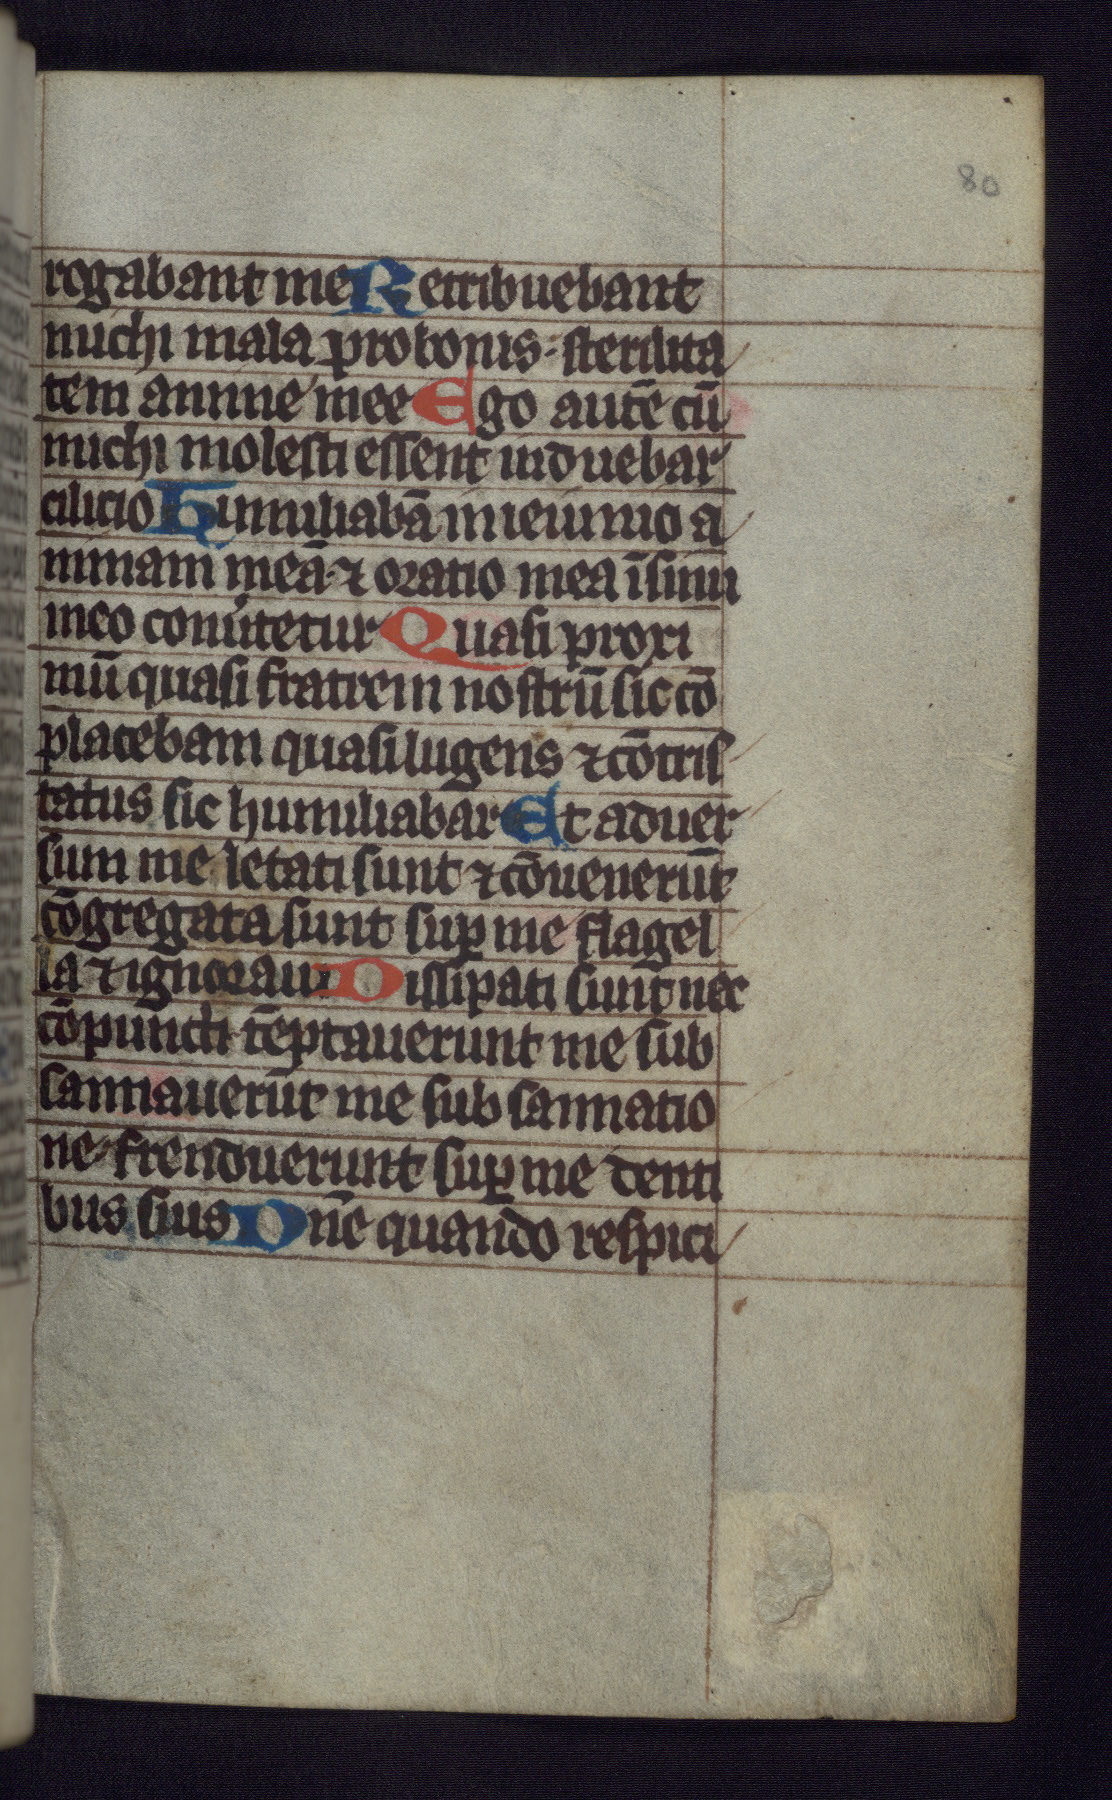 80
rogabant me Retribuebant
michi mala pro bonis · sterilita
tem anime mee Ego autē cū
michi molesti essent induebar
cilicio Humiliabā in ieiunio a
nimam meā · ⁊ oratio mea ī sinu
meo conuertetur Quasi proxi
mū quasi fratrem nostrū sic cō
placebam quasi lugens ⁊ cōtris
tatus sic humiliabar Et aduer
sum me letati sunt ⁊ cōuenerūt
cōgregata sunt suꝑ me flagel
la ⁊ ignoraui Dissipati sunt nec
cōpuncti tēptauerunt me sub
sannauerūt me sub sannatio
ne · frenduerunt suꝑ me denti
bus suis Dn̄e quando respici